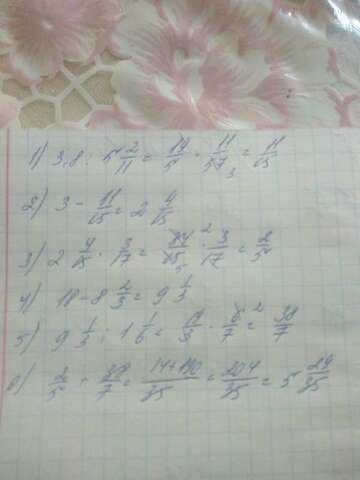 1) 3,8 : 5 2/11 = 19/5 · 11/57 3 = 11/15
2) 3 - 11/15 = 2 4/15
3) 2 4/15 · 3/17 = 34/15 5 2 · 3/17 = 2/5
4) 18 - 8 2/3 = 9 1/3
5) 9 1/3 : 1 1/6 = · 6/7 2 = 38/7
6) 2/5 + 38/7 = 14+190/35 = 204/35 = 5 29/35